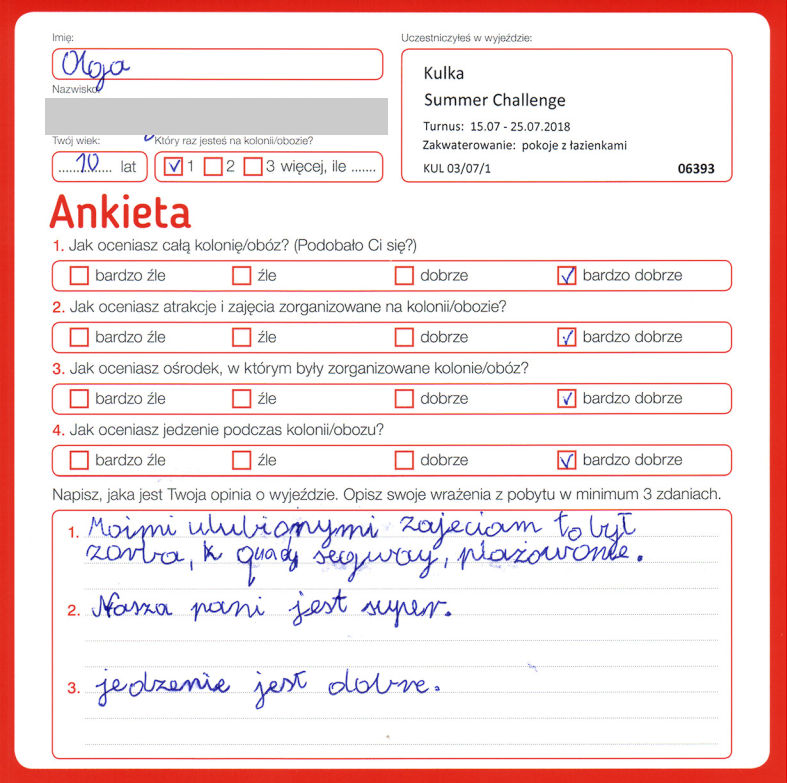 Imię:
Olga
Nazwisko:
Twój wiek:
10 lat
Który raz jesteś na kolonii/obozie?
1 2 3 więcej, ile .......
Uczestniczyłeś w wyjeździe:
Kulka
Summer Challenge
Turnus: 15.07 - 25.07.2018
Zakwaterowanie: pokoje z łazienkami
KUL 03/07/1 06393
Ankieta
1. Jak oceniasz całą kolonię/obóz? (Podobało Ci się?)
bardzo źle źle dobrze bardzo dobrze
2. Jak oceniasz atrakcje i zajęcia zorganizowane na kolonii/obozie?
bardzo źle źle dobrze bardzo dobrze
3. Jak oceniasz ośrodek, w którym były zorganizowane kolonie/obóz?
bardzo źle źle dobrze bardzo dobrze
4. Jak oceniasz jedzenie podczas kolonii/obozu?
bardzo źle źle dobrze bardzo dobrze
Napisz, jaka jest Twoja opinia o wyjeździe. Opisz swoje wrażenia z pobytu w minimum 3 zdaniach.
1. Moimi ulubionymi zajeciam to był
zorba, k quady segway, plażowanie.
2. Nasza pani jest super.
3. jedzenie jest dobre.